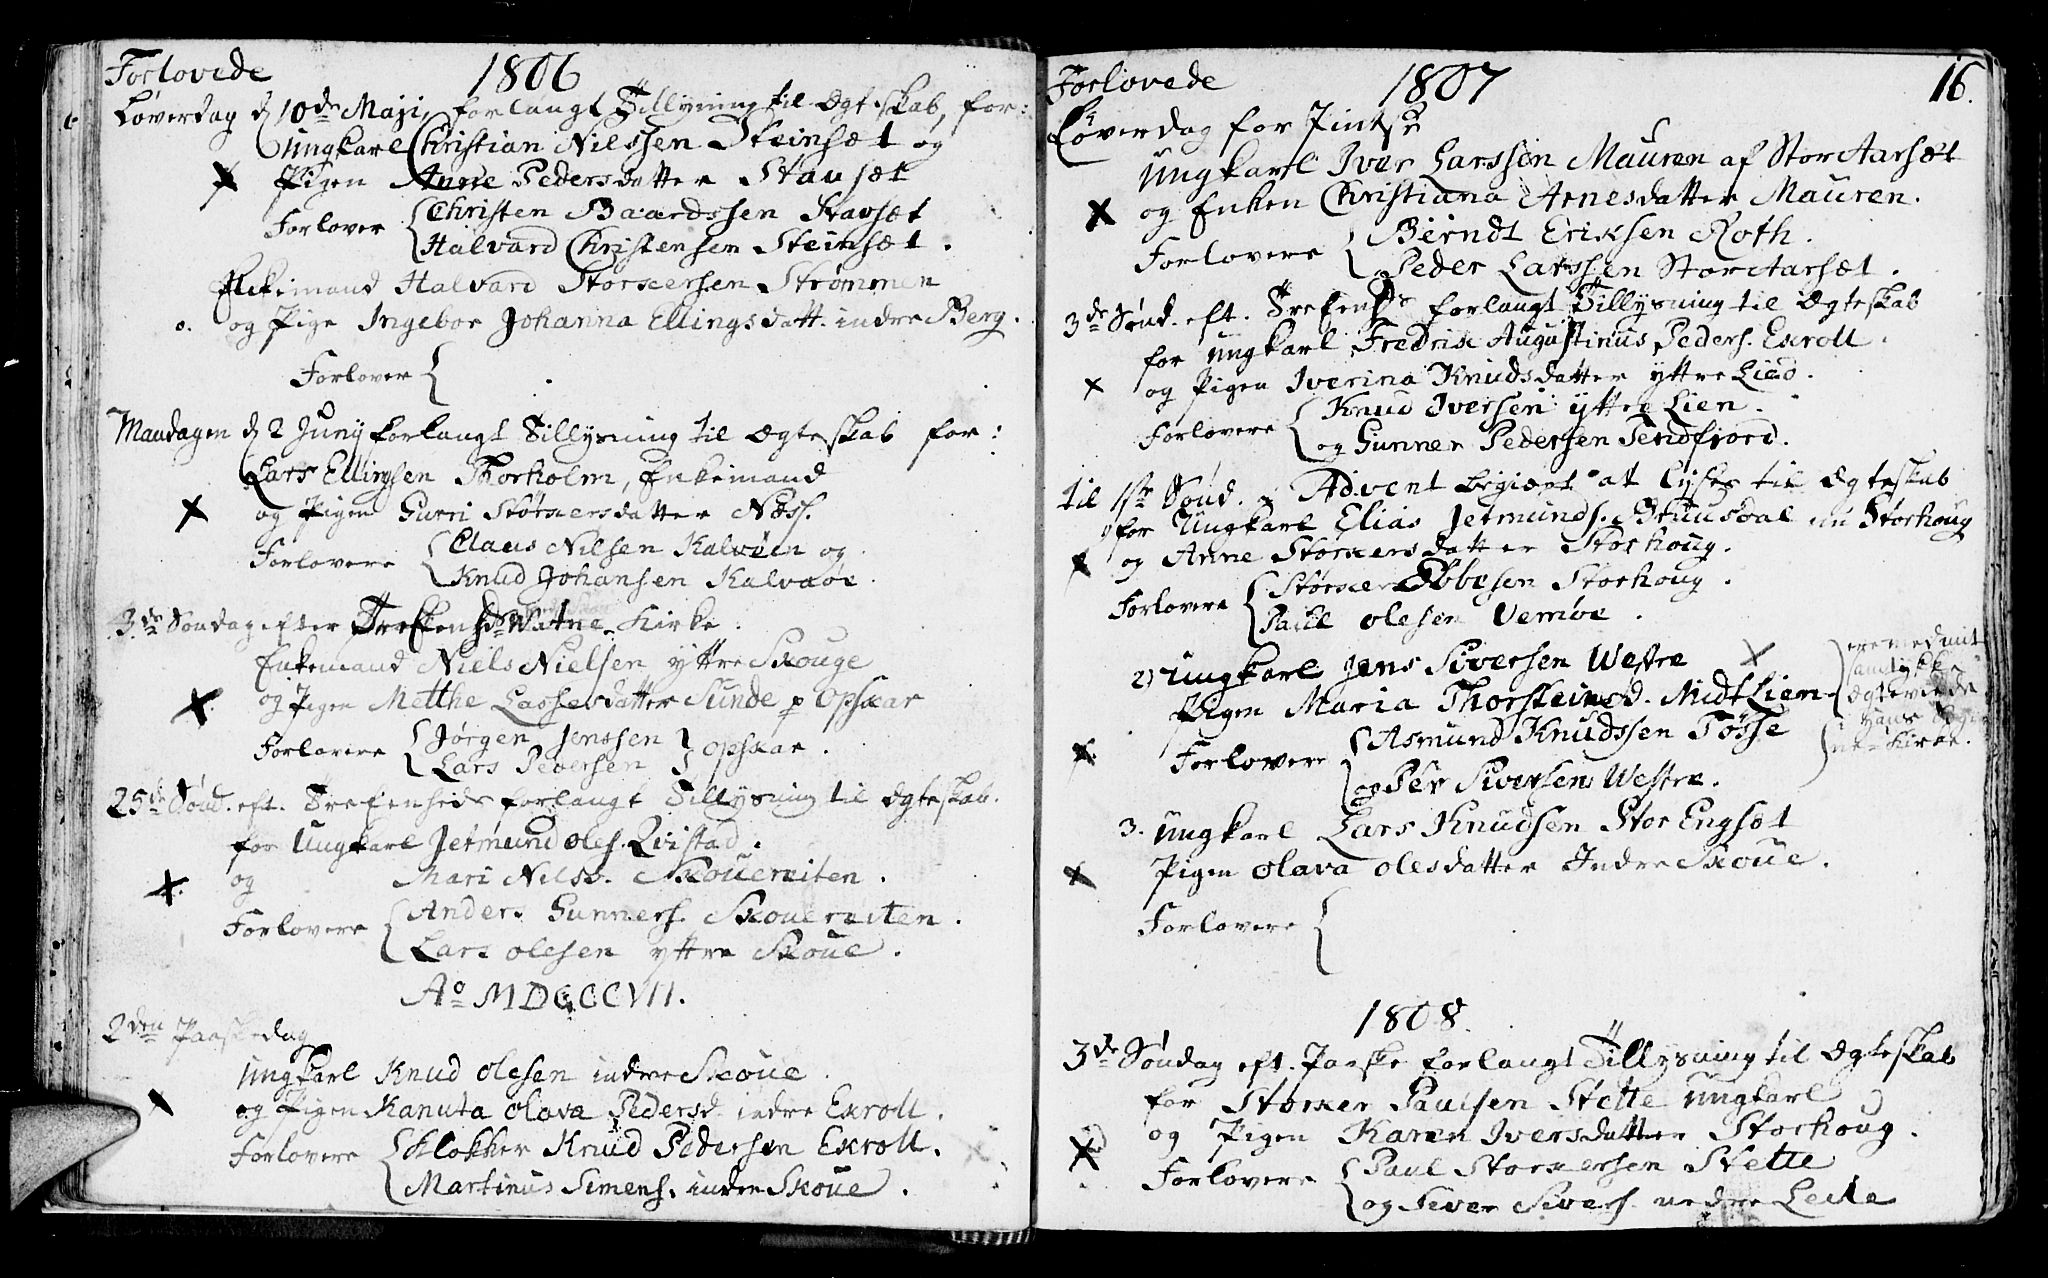 Forlovede 1806
Løverdag d 10de Maji, forlangt Tillysning til Ægteskab, for:
Ungkarl Christian Nilssen Steinsæt og
Pigen Anne Pedersdatter Stavsæt
Forlover Christen Baardssen Stavsæt
Halvard Christensen Steinsæt.
Enkemand Halvard Storkersen Strømmen
o. og Pige Ingebor Johanna Ellingsdatt. indre Berg.
Forlover
Mandagen d 2 Juny forlangt Tillysning til Ægteskab for:
Lars Ellingsen Thorholm, Enkemand
og Pigen Gurri Størkersdatter Næss.
Forlovere Claus Nilsen Kalvøen og
Knud Johansen Kalvøe.
3de Søndag efter Trefenheds Watne Kirke.
Enkemand Niels Nielsen yttre Skouge
og Pigen Metthe Lassesdatter Sunde p Opskar
Forlovere Jørgen Jenssen
Lars Pedersen Opskar.
25de Sønd. eft. Trefenheds forlangt Tillysning til Ægteskab.
for Ungkarl Jetmund Oles. Qvistad.
og Mari Nilsd. Skouereiten.
Forlovere Anders Gunners. Skouereiten.
Lars Olesen yttre Skoue.
Ao MDCCCVII.
2den Paaskedag
Ungkarl Knud Olesen indre Skoue.
og Pigen Kanuta Olava Pedersd. indre Exroll.
Forlovere Klokker Knud Pedersen Exroll.
Martinus Simens. indre Skoue.
Forlovede 1807 16.
Løverdag for Pintse
Ungkarl Iver Larssen Mauren af StorAarsæt
og Enken Christiana Arnesdatter Mauren.
Forlovere Berndt Eriksen Roth.
Peder Larssen StorAarsæt.
3de Sønd. eft. Trefenhds forlangt Tillysning til Ægteskab
for Ungkarl Fredrik Augustinus Peders. Exroll.
og Pigen Iverina Knudsdatter yttre Lien.
Forlovere Knud Iversen yttre Lien.
og Gunner Pedersen Tendfjord.
til 1ste Sønd. Advent begiært at lyses til Ægteskab
for Ungkarl Elias Jetmunds. Bruusdal nu Storhoug
og Anne Storkersdatter Storhoug.
Forlovere Størker Ebbesen Storhoug.
Paul Olesen Vemøe.
2) Ungkarl Jens Siversen Westre
Pigen Maria Thorsteinsd. Midt Lien
ere med mit
samtykke
Ægteviede
Forlovere Asmund Knudssen Tøsse
og Per Siversen Westre.
Kirke.
3. Ungkarl Lars Knudsen Stor Engsæt
Pigen Olava Olesdatter Indre Skoue.
Forlovere
1808.
3de Søndag eft. Paaske forlangt Tillysning til Ægteskab
for Storker Paulsen Stette Ungkarl
og Pigen Karen Iversdatter Storhoug.
Forlovere Paul Storkersen Stette
og Siver Sivers. nedre Leite